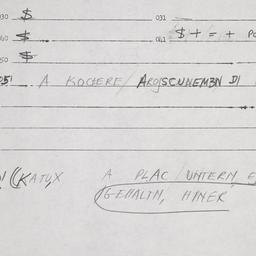 030 $ 031
060 $ 061 $ + = + PO
050 $
051 A KOCHERE/ AROJSCUNEMƎN DI
KATUX A PLAC UNTERN, E
GEHALTN, HYNER